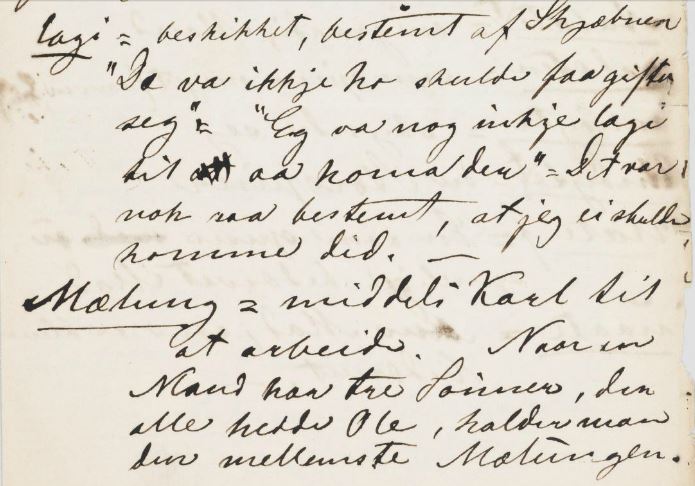 lagi = beskikket, bestemt af Skjæbnen
"Da va ikkje ho skulde faa gifta
seg" = "Eg va nog inkje lagi
til aa koma der" = Det var
nok saa bestemt, at jeg ei skulde
komme did. —
Mætung = middels Karl til
at arbeide. Naar en
Mand har tre Sønner, der
alle hedde Ole, kalder man
den mellemste Mætungen.